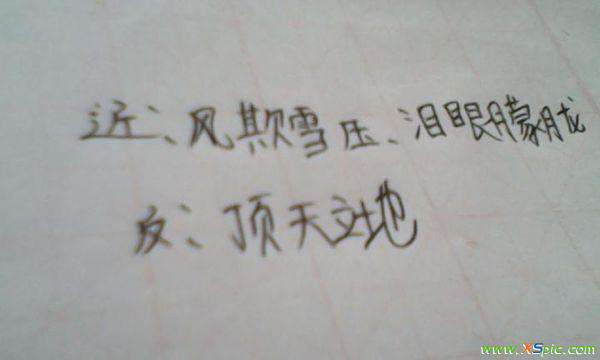 近：风欺雪压、泪眼朦胧
反：顶天立地
www.XSpic.com